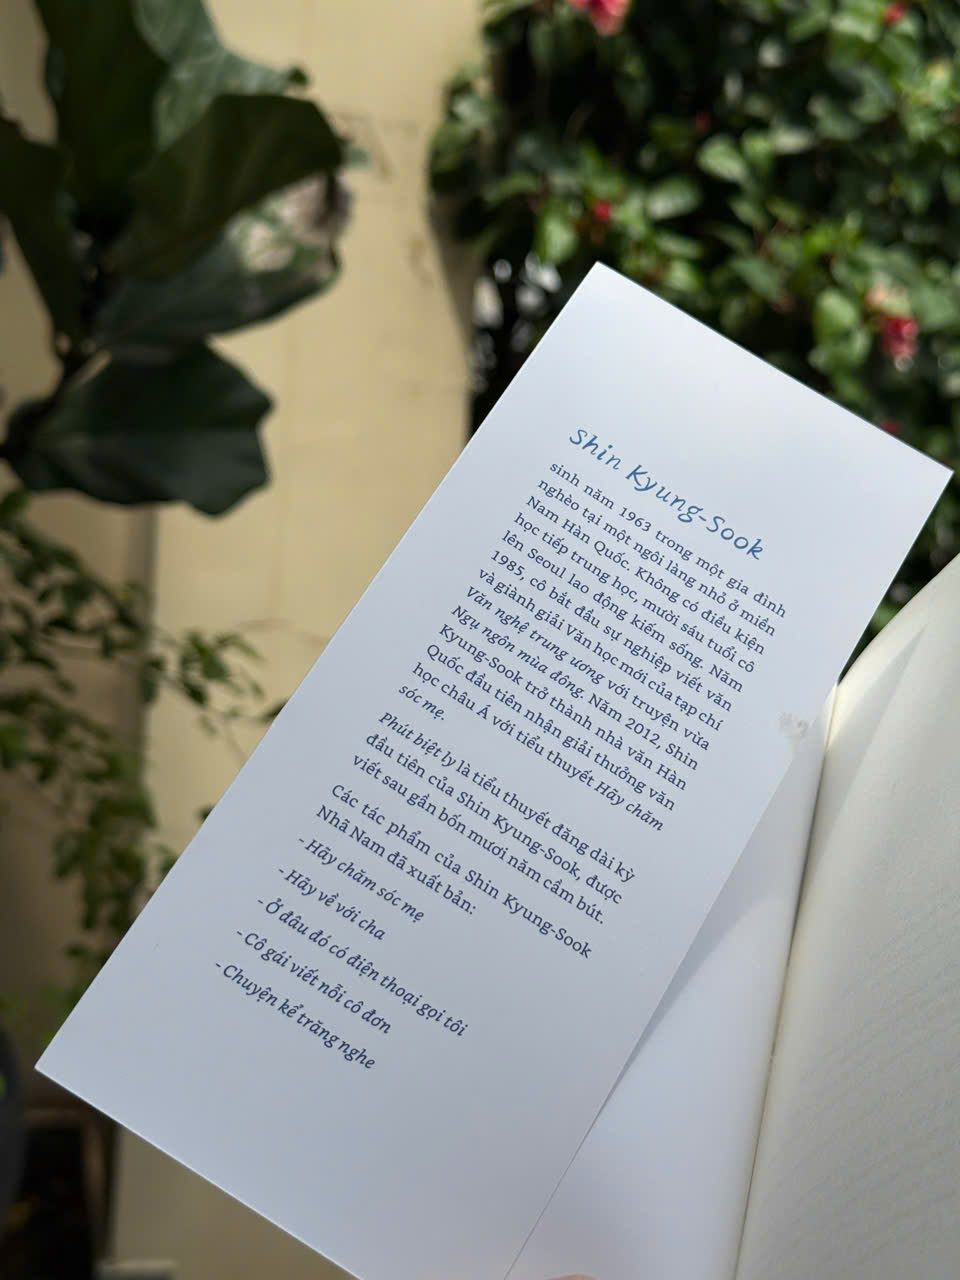 Shin Kyung-Sook
sinh năm 1963 trong một gia đình
nghèo tại một ngôi làng nhỏ ở miền
Nam Hàn Quốc. Không có điều kiện
học tiếp trung học, mười sáu tuổi cô
lên Seoul lao động kiếm sống. Năm
1985, cô bắt đầu sự nghiệp viết văn
và giành giải Văn học mới của tạp chí
Văn nghệ trung ương với truyện vừa
Ngụ ngôn mùa đông. Năm 2012, Shin
Kyung-Sook trở thành nhà văn Hàn
Quốc đầu tiên nhận giải thưởng văn
học châu Á với tiểu thuyết Hãy chăm
sóc mẹ.
Phút biệt ly là tiểu thuyết đăng dài kỳ
đầu tiên của Shin Kyung-Sook, được
viết sau gần bốn mươi năm cầm bút.
Các tác phẩm của Shin Kyung-Sook
Nhã Nam đã xuất bản:
- Hãy chăm sóc mẹ
- Hãy về với cha
- Ở đâu đó có điện thoại gọi tôi
- Cô gái viết nỗi cô đơn
- Chuyện kể trăng nghe